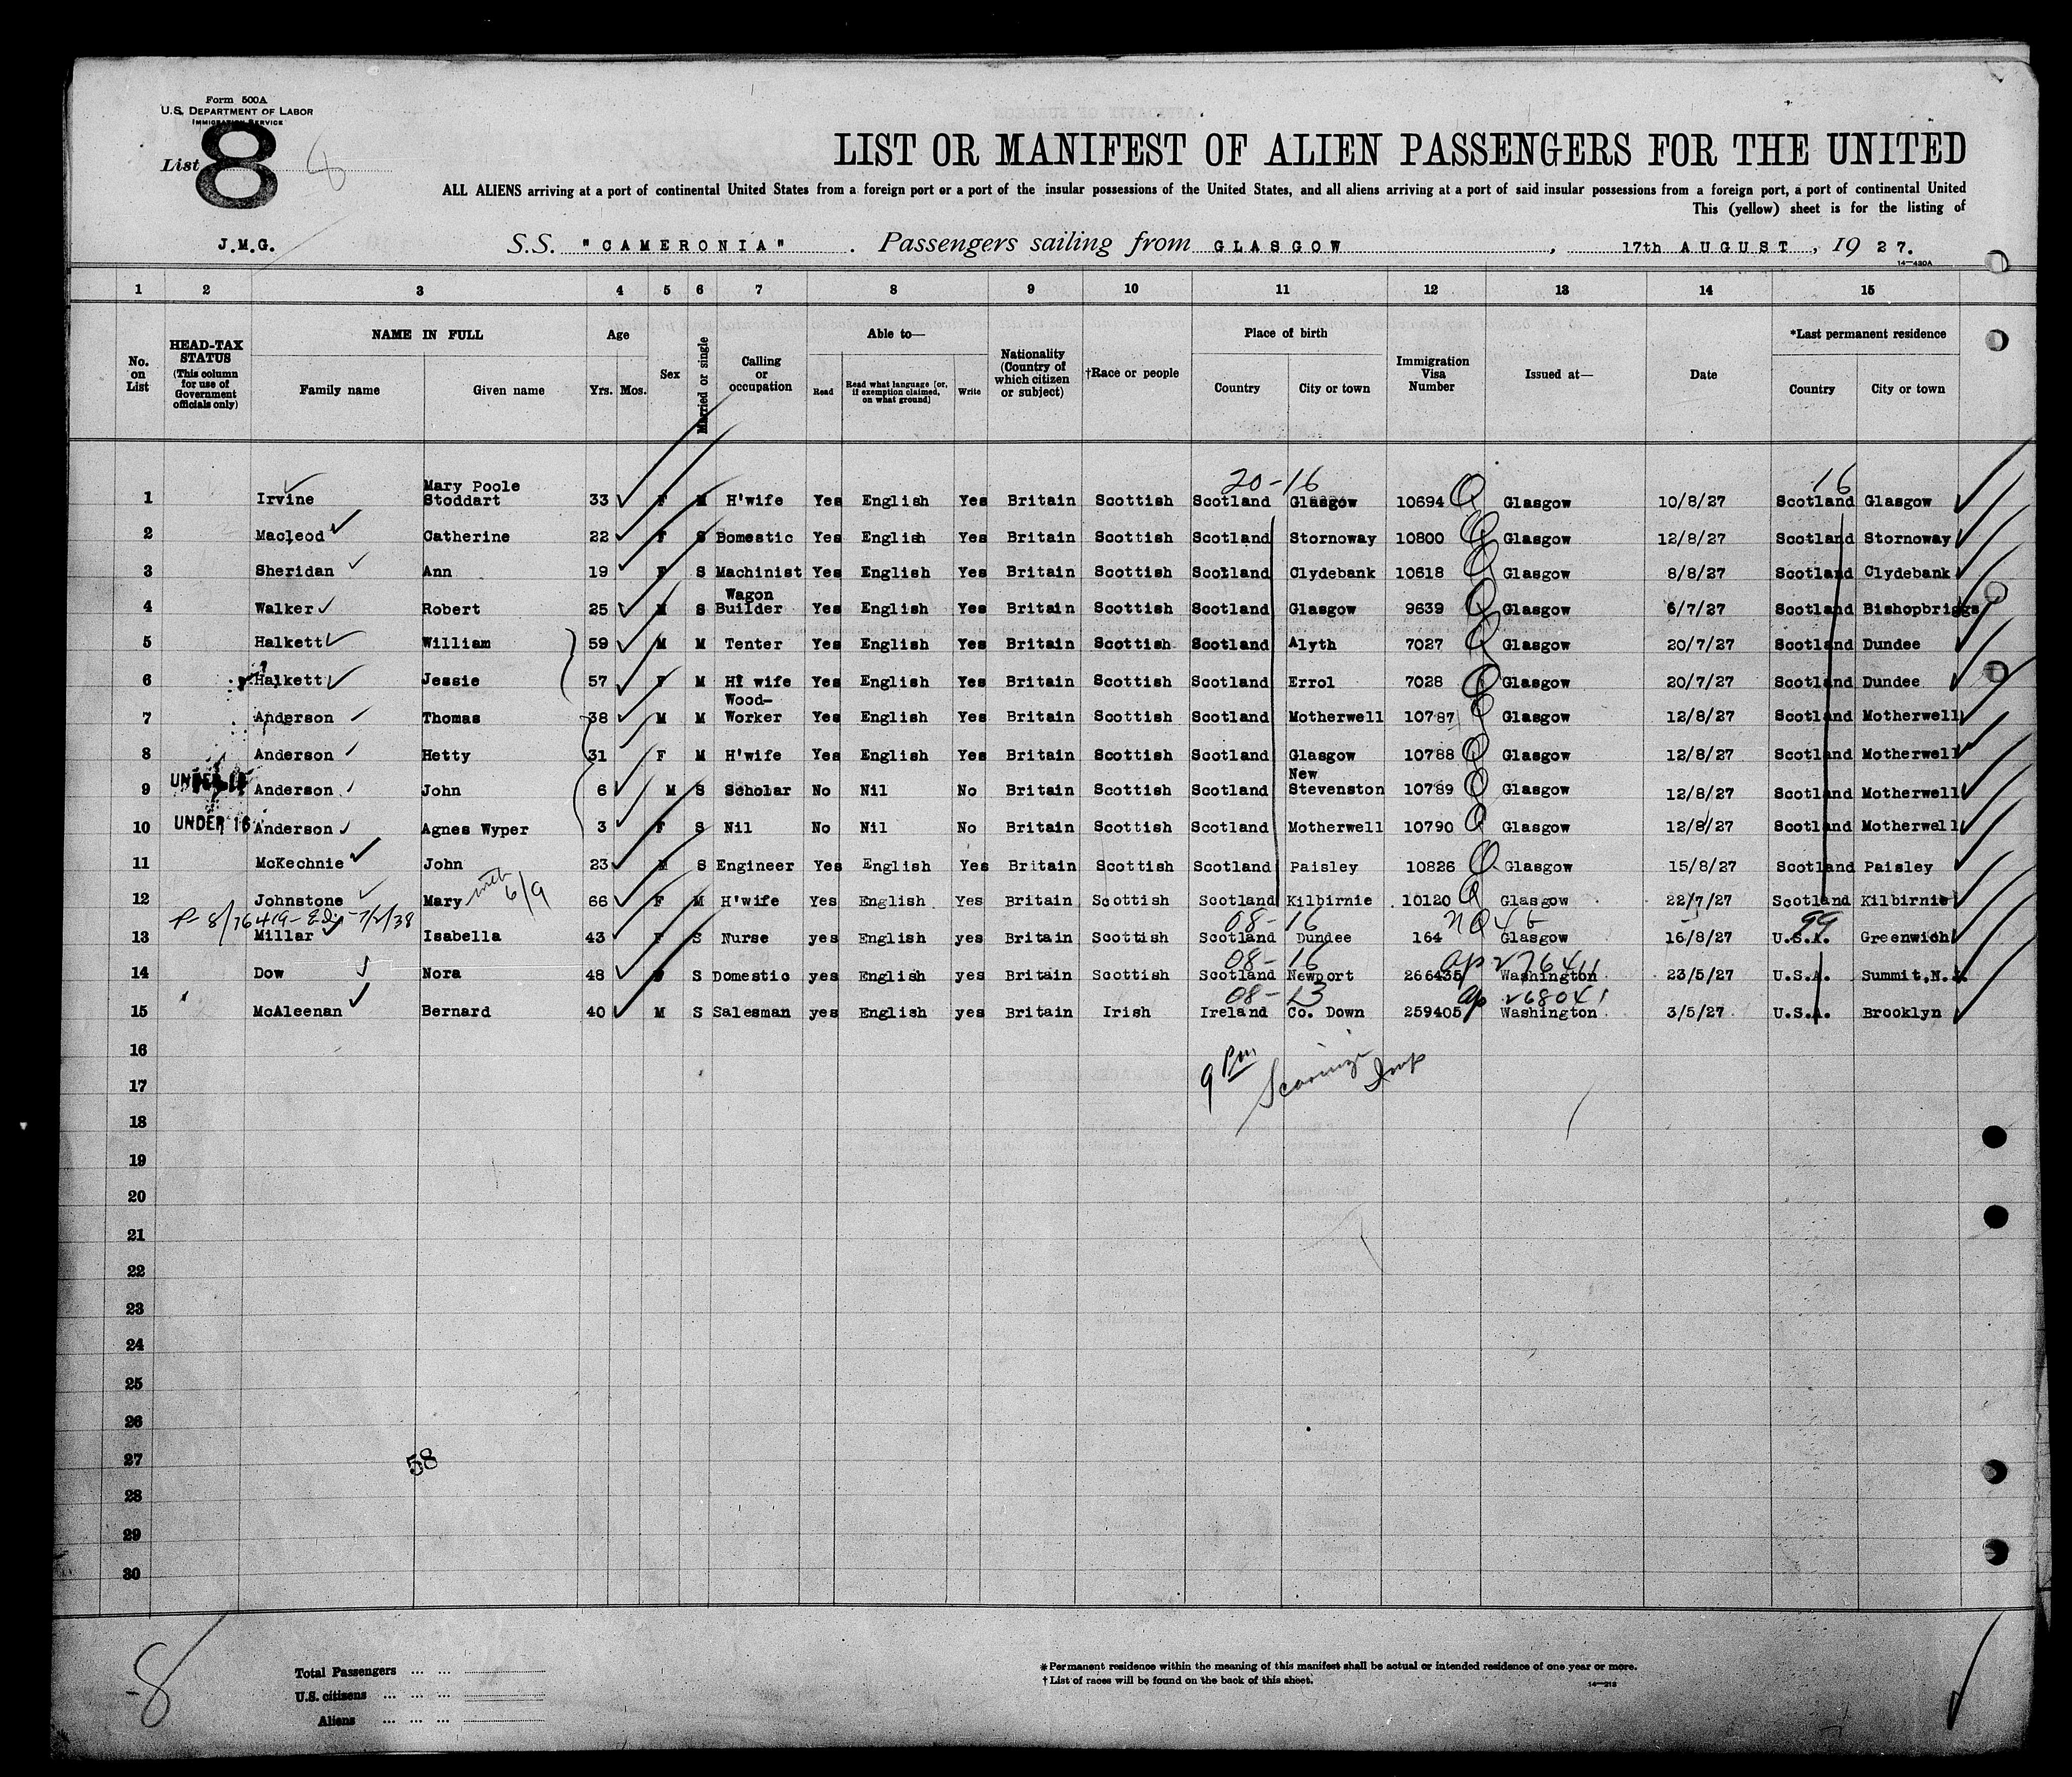 Form 500A
U.S. DEPARTMENT OF LABOR
IMMIGRATION SERVICE
List 8 8
LIST OR MANIFEST OF ALIEN PASSENGERS FOR THE UNITED
ALL ALIENS arriving at a port of continental United States from a foreign port or a port of the insular possessions of the United States, and all aliens arriving at a port of said insular possessions from a foreign port, a port of continental United
This (yellow) sheet is for the listing of
J.M.G. S.S. "CAMERONIA" . Passengers sailing from GLASGOW , 17th AUGUST , 19 27.
14—430A
1 2 3 4 5 6 7 8 9 10 11 12 13 14 15
No. on List HEAD-TAX STATUS (This column for use of Government officials only) NAME IN FULL Family name Given name Age Yrs. Mos. Sex Married or single Calling or occupation Able to— Read Read what language [or, if exemption claimed, on what ground] Write Nationality (Country of which citizen or subject) †Race or people Place of birth Country City or town Immigration Visa Number Issued at— Date *Last permanent residence Country City or town
20-16 16
1 Irvine Mary Poole Stoddart 33 F M H'wife Yes English Yes Britain Scottish Scotland Glasgow 10694 Glasgow 10/8/27 Scotland Glasgow
2 Macleod Catherine 22 F S Bomestic Yes English Yes Britain Scottish Scotland Stornoway 10800 Glasgow 12/8/27 Scotland Stornoway
3 Sheridan Ann 19 F S Machinist Yes English Yes Britain Scottish Scotland Clydebank 10618 Glasgow 8/8/27 Scotland Clydebank
4 Walker Robert 25 M S Wagon Builder Yes English Yes Britain Scottish Scotland Glasgow 9639 Glasgow 6/7/27 Scotland Bishopbriggs
5 Halkett William 59 M M Tenter Yes English Yes Britain Scottish Scotland Alyth 7027 Glasgow 20/7/27 Scotland Dundee
6 Halkett Jessie 57 F M H' wife Yes English Yes Britain Scottish Scotland Errol 7028 Glasgow 20/7/27 Scotland Dundee
7 Anderson Thomas 38 M M Wood-Worker Yes English Yes Britain Scottish Scotland Motherwell 10787 Glasgow 12/8/27 Scotland Motherwell
8 Anderson Hetty 31 F M H'wife Yes English Yes Britain Scottish Scotland Glasgow 10788 Glasgow 12/8/27 Scotland Motherwell
9 UNDER 16 Anderson John 6 M S Scholar No Nil No Britain Scottish Scotland New Stevenston 10789 Glasgow 12/8/27 Scotland Motherwell
10 UNDER 16 Anderson Agnes Wyper 3 F S Nil No Nil No Britain Scottish Scotland Motherwell 10790 Glasgow 12/8/27 Scotland Motherwell
11 McKechnie John 23 M S Engineer Yes English Yes Britain Scottish Scotland Paisley 10826 Glasgow 15/8/27 Scotland Paisley
12 Johnstone Mary 6/9 66 F M H'wife Yes English Yes Britain Scottish Scotland Kilbirnie 10120 Glasgow 22/7/27 Scotland Kilbirnie
08-16 99
13 Millar Isabella 43 F S Nurse yes English yes Britain Scottish Scotland Dundee 164 Glasgow 16/8/27 U.S.A. Greenwich
08-16
14 Dow Nora 48 F S Domestic yes English yes Britain Scottish Scotland Newport 266435 Washington 23/5/27 U.S.A. Summit,N.J.
08-13 268041
15 McAleenan Bernard 40 M S Salesman yes English yes Britain Irish Ireland Co. Down 259405 Washington 3/5/27 U.S.A. Brooklyn
16
9 Pm
17
18
19
20
21
22
23
24
25
26
27 58
28
29
30
8
Total Passengers ... ...
U.S. citizens ... ... ...
Aliens ... ... ...
*Permanent residence within the meaning of this manifest shall be actual or intended residence of one year or more.
†List of races will be found on the back of this sheet.
14—213